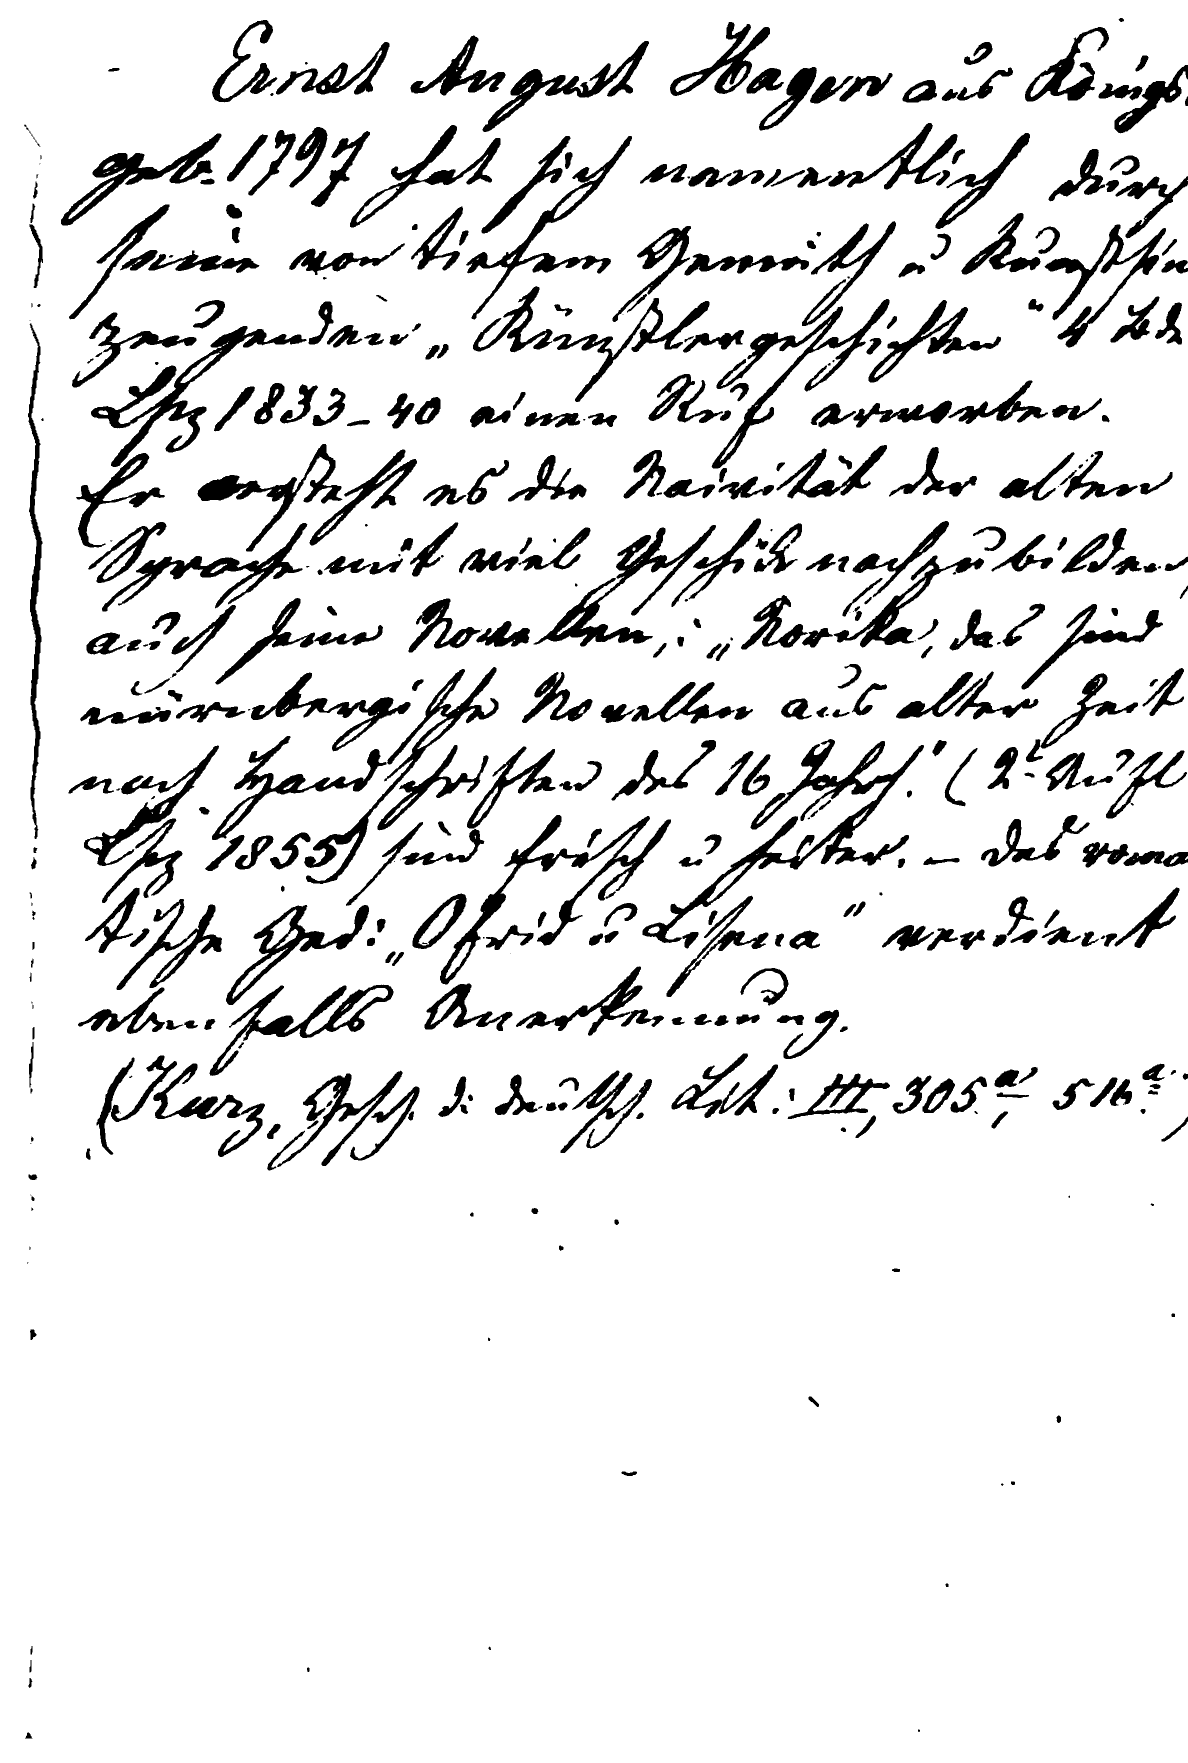 Ernst August Hagen aus Königs
geb. 1797 hat sich namentlich durch
seine von tiefem Gemüth u Kunstsin
zeugenden „Künstlergeschichten" 4 Bde
Lpz 1833-40 einen Ruf erworben.
Er versteht es die Naivität der alten
Sprache mit viel Geschick nachzubilden,
auch seine Novellen,: „Norika, das sind
nürnbergische Novellen aus alter Zeit
nach Handschriften des 16 Jahrh." (2t Aufl
Lpz 1855) sind frisch u heiter. – Das roma
tische Ged: „Olfrid u Lisena" verdient
ebenfalls Anerkennung.
(Kurz, Gesch. d: deutsch. Lit: III, 305a, 516a.)